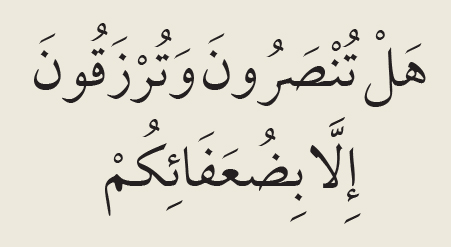 هَلْ تُنْصَرُونَ وَتُرْزَقُونَ
إِلَّا بِضُعَفَائِكُمْ